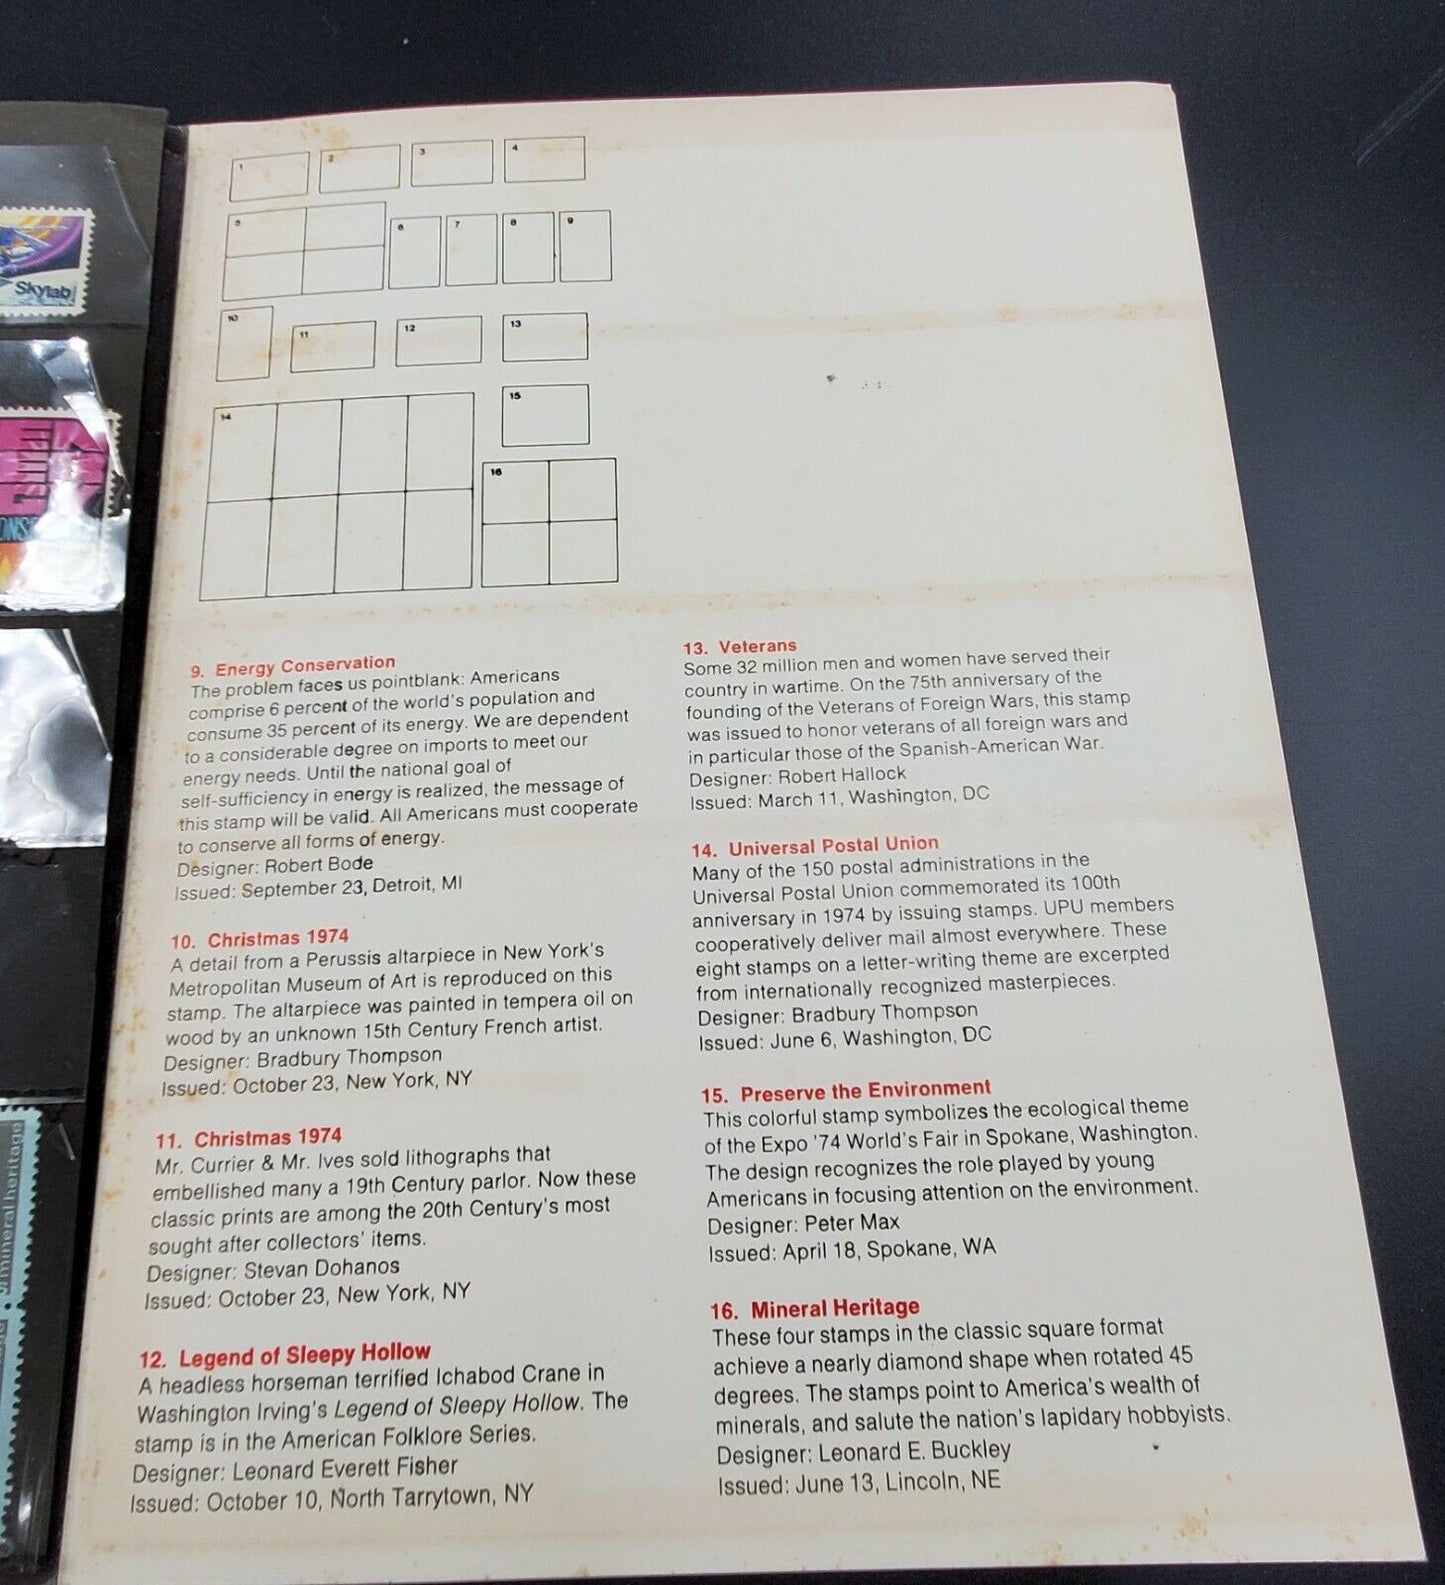 Skylab
mineral heritage
1
2
3
4
5
6
7
8
9
10
11
12
13
14
15
16
9. Energy Conservation
The problem faces us pointblank: Americans
comprise 6 percent of the world's population and
consume 35 percent of its energy. We are dependent
to a considerable degree on imports to meet our
energy needs. Until the national goal of
self-sufficiency in energy is realized, the message of
this stamp will be valid. All Americans must cooperate
to conserve all forms of energy.
Designer: Robert Bode
Issued: September 23, Detroit, MI
10. Christmas 1974
A detail from a Perussis altarpiece in New York's
Metropolitan Museum of Art is reproduced on this
stamp. The altarpiece was painted in tempera oil on
wood by an unknown 15th Century French artist.
Designer: Bradbury Thompson
Issued: October 23, New York, NY
11. Christmas 1974
Mr. Currier & Mr. Ives sold lithographs that
embellished many a 19th Century parlor. Now these
classic prints are among the 20th Century's most
sought after collectors' items.
Designer: Stevan Dohanos
Issued: October 23, New York, NY
12. Legend of Sleepy Hollow
A headless horseman terrified Ichabod Crane in
Washington Irving's Legend of Sleepy Hollow. The
stamp is in the American Folklore Series.
Designer: Leonard Everett Fisher
Issued: October 10, North Tarrytown, NY
13. Veterans
Some 32 million men and women have served their
country in wartime. On the 75th anniversary of the
founding of the Veterans of Foreign Wars, this stamp
was issued to honor veterans of all foreign wars and
in particular those of the Spanish-American War.
Designer: Robert Hallock
Issued: March 11, Washington, DC
14. Universal Postal Union
Many of the 150 postal administrations in the
Universal Postal Union commemorated its 100th
anniversary in 1974 by issuing stamps. UPU members
cooperatively deliver mail almost everywhere. These
eight stamps on a letter-writing theme are excerpted
from internationally recognized masterpieces.
Designer: Bradbury Thompson
Issued: June 6, Washington, DC
15. Preserve the Environment
This colorful stamp symbolizes the ecological theme
of the Expo '74 World's Fair in Spokane, Washington.
The design recognizes the role played by young
Americans in focusing attention on the environment.
Designer: Peter Max
Issued: April 18, Spokane, WA
16. Mineral Heritage
These four stamps in the classic square format
achieve a nearly diamond shape when rotated 45
degrees. The stamps point to America's wealth of
minerals, and salute the nation's lapidary hobbyists.
Designer: Leonard E. Buckley
Issued: June 13, Lincoln, NE